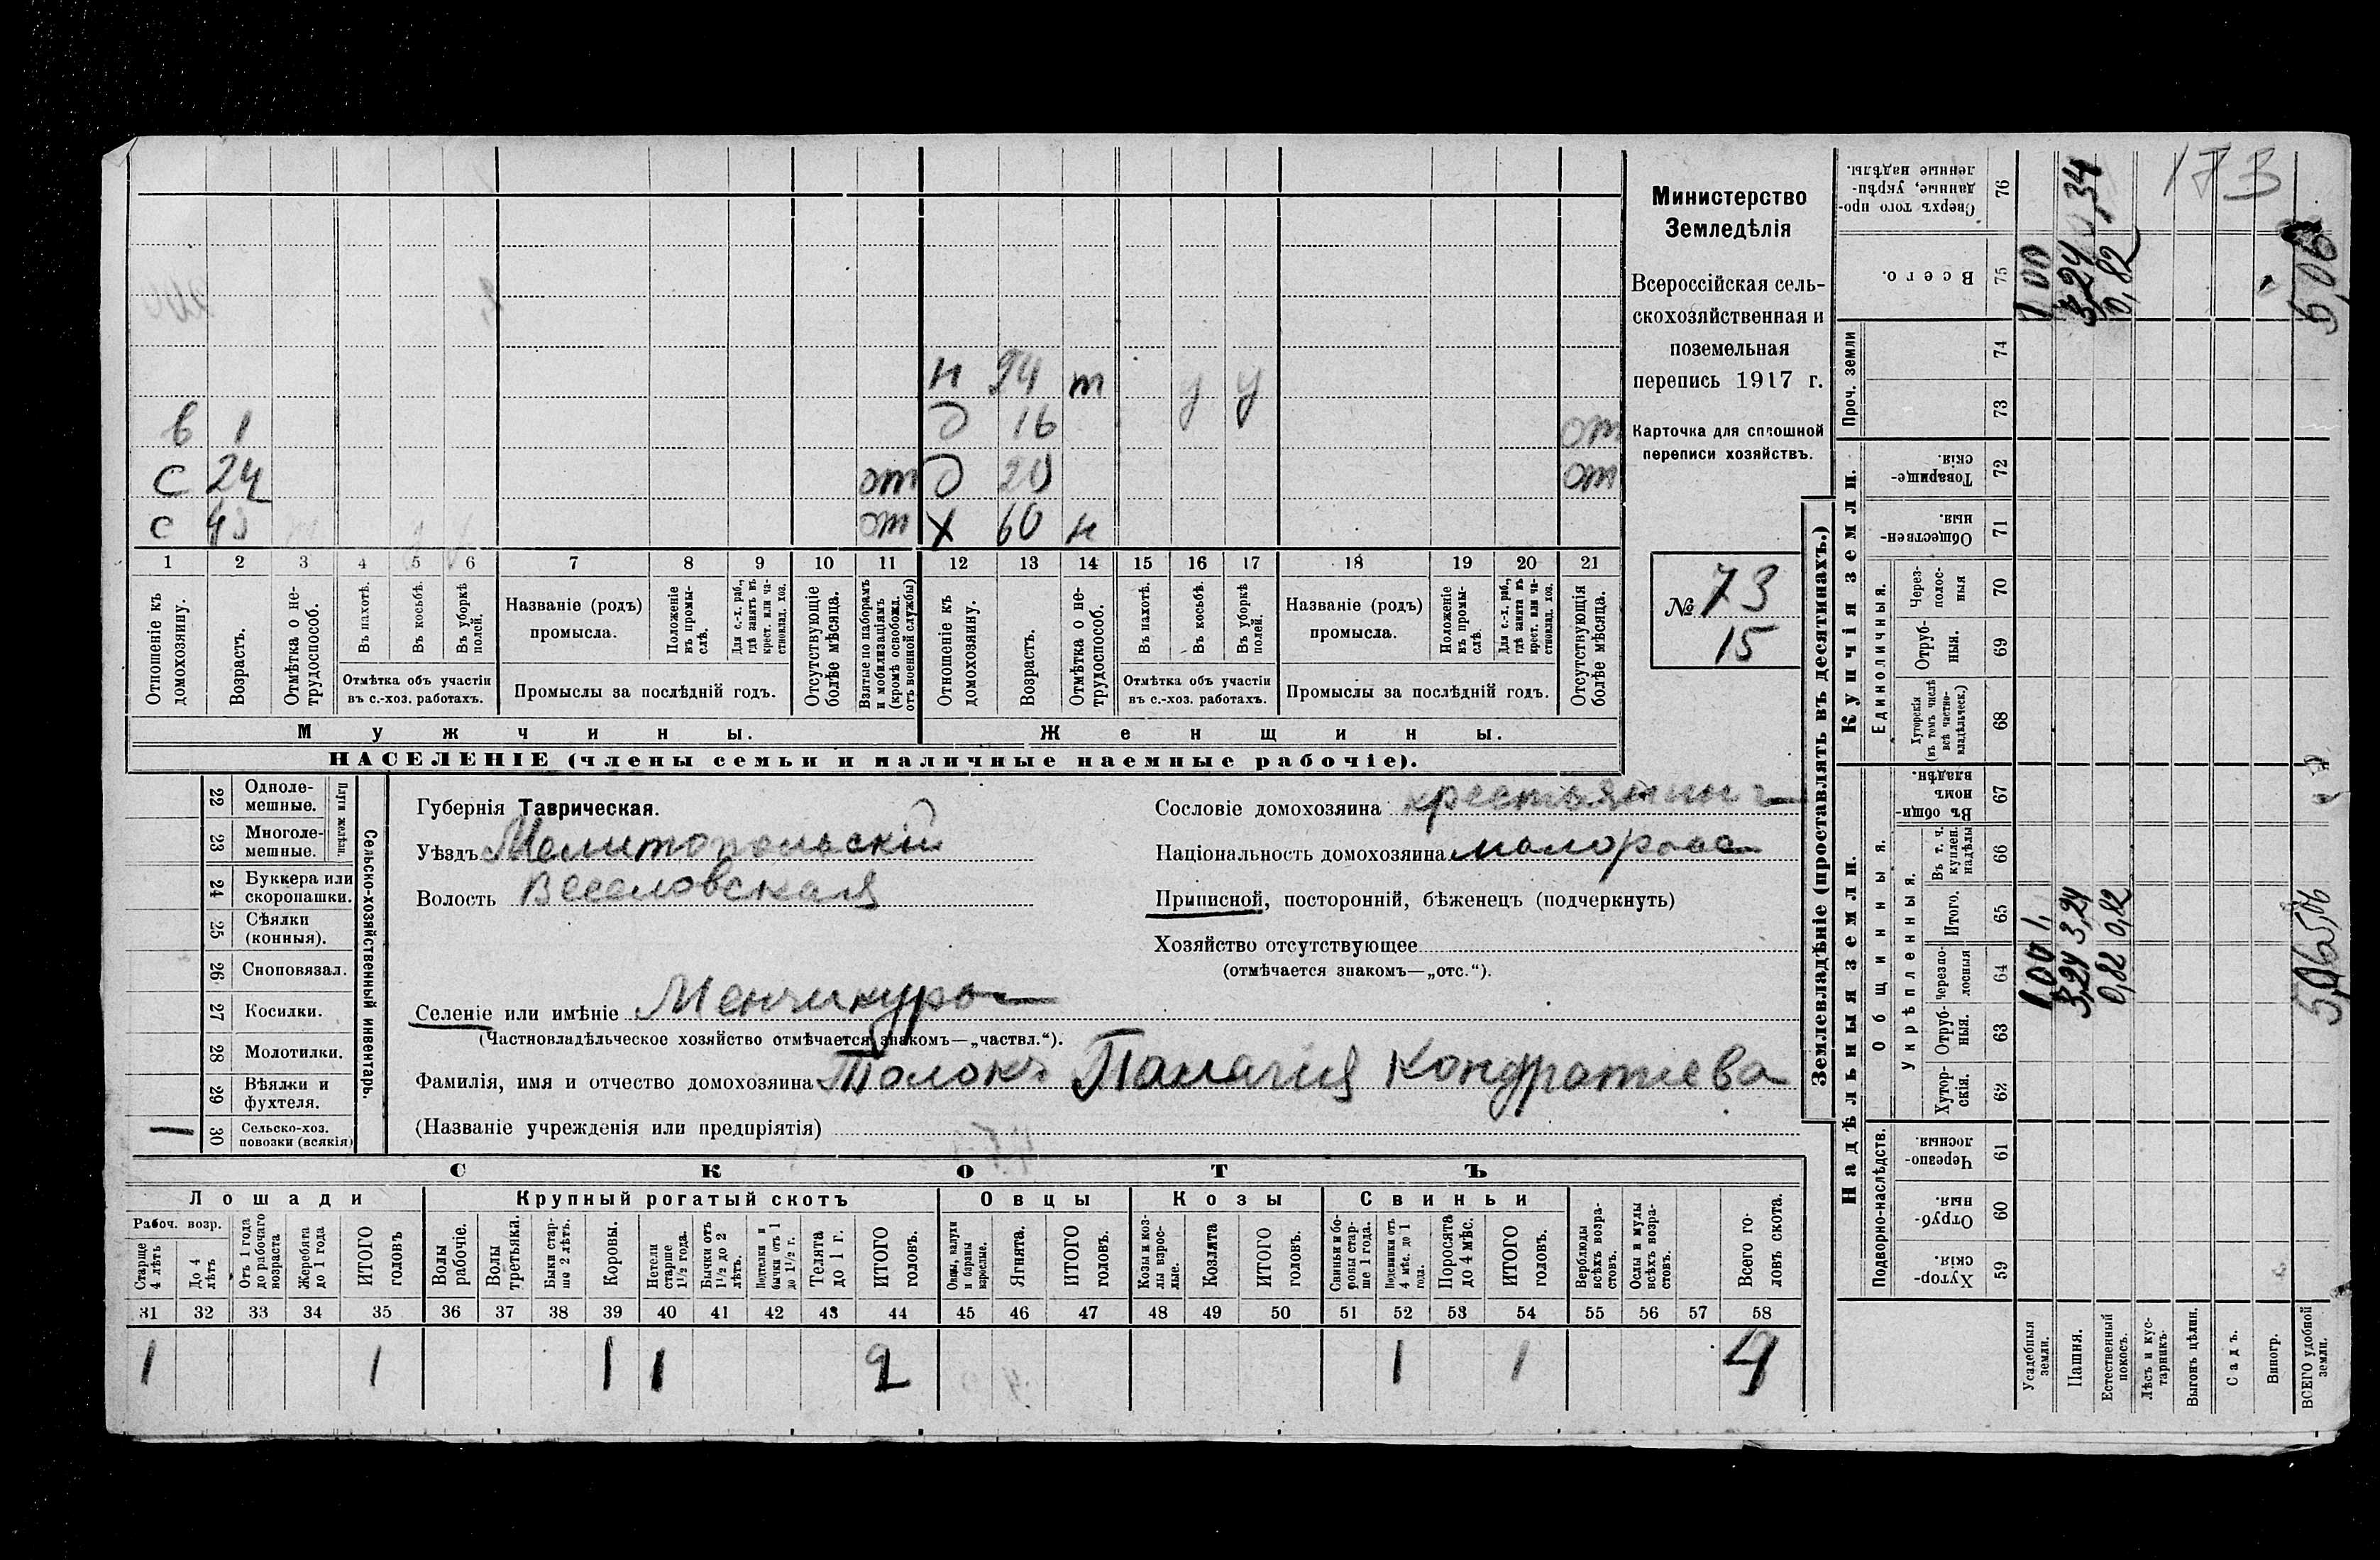 173
Министерство
Земледѣлія
Всероссійская сель-
скохозяйственная и
поземельная
перепись 1917 г.
Карточка для сплошной
переписи хозяйствъ.
№ 73
15
н 24 т у у
в 1 д 16 от
с 24 от д 20 от
с 43 от х 60 н
1 2 3 4 5 6 7 8 9 10 11 12 13 14 15 16 17 18 19 20 21
Отношеніе къ домохозяину.
Возрастъ.
Отмѣтка о не-трудоспособ.
Въ пахотѣ.
Въ косьбѣ.
Въ уборкѣ полей.
Отмѣтка объ участіи
въ с.-хоз. работахъ.
Названіе (родъ)
промысла.
Положеніе въ промы-слѣ.
Для с.-х. раб., гдѣ занятъ въ крест. или ча-стновлад. хоз.
Промыслы за послѣдній годъ.
Отсутствующіе болѣе мѣсяца.
Взятые по наборамъ и мобилизаціямъ (кромѣ освобожд. отъ военной службы)
Отношеніе къ домохозяину.
Возрастъ.
Отмѣтка о не-трудоспособ.
Въ пахотѣ.
Въ косьбѣ.
Въ уборкѣ полей.
Отмѣтка объ участіи
въ с.-хоз. работахъ.
Названіе (родъ)
промысла.
Положеніе въ промы-слѣ.
Для с.-х. раб., гдѣ занята въ крест. или ча-стновлад. хоз.
Промыслы за послѣдній годъ.
Отсутствующія болѣе мѣсяца.
Мужчины.
Женщины.
НАСЕЛЕНІЕ (члены семьи и наличные наемные рабочіе).
22 Одноле-мешные.
23 Многоле-мешные.
Плуги желѣзн.
24 Буккера или скоропашки.
25 Сѣялки (конныя).
26 Сноповязал.
27 Косилки.
28 Молотилки.
29 Вѣялки и фухтеля.
1 30 Сельско-хоз. повозки (всякія)
Сельско-хозяйственный инвентарь.
Губернія Таврическая.
Уѣздъ Мелитопольскій
Волость Веселовская
Селеніе или имѣніе Менчикуро
(Частновладѣльческое хозяйство отмѣчается знакомъ—„частвл.“).
Фамилія, имя и отчество домохозяина Толокъ Палагия Кондратиева
(Названіе учрежденія или предпріятія)
Сословіе домохозяина крестьянин
Національность домохозяина малоросс
Приписной, посторонній, бѣженецъ (подчеркнуть)
Хозяйство отсутствующее
(отмѣчается знакомъ—„отс.“).
СКОТЪ
Лошади
Крупный рогатый скотъ
Овцы
Козы
Свиньи
Рабоч. возр.
Старше 4 лѣтъ
До 4 лѣтъ
Отъ 1 года до рабочаго возраста
Жеребята до 1 года
ИТОГО головъ
Волы рабочіе.
Волы третьяки.
Быки стар-ше 2 лѣтъ.
Коровы.
Нетели старше 1½ года.
Бычки отъ 1½ до 2 лѣтъ.
Подтелки и бычки отъ 1 до 1½ г.
Телята до 1 г.
ИТОГО головъ.
Овцы, валухи и бараны взрослые.
Ягнята.
ИТОГО головъ.
Козы и коз-лы взрос-лые.
Козлята
ИТОГО головъ.
Свиньи и бо-ровы стар-ше 1 года.
Подсвинки отъ 4 мѣс. до 1 года.
Поросята до 4 мѣс.
ИТОГО головъ.
Верблюды всѣхъ возра-стовъ.
Ослы и мулы всѣхъ возра-стовъ.
Всего го-ловъ скота.
31 32 33 34 35 36 37 38 39 40 41 42 43 44 45 46 47 48 49 50 51 52 53 54 55 56 57 58
1 1 1 1 2 1 1 4
Землевладѣніе (проставлять въ десятинахъ.)
Надѣльныя земли.
Купчія земли.
Проч. земли
Подворно-наслѣдств.
Общинныя.
Укрѣпленныя.
Единоличныя.
Хутор-скія. 59
Отруб-ныя. 60
Черезпо-лосныя 61
Хутор-скія. 62
Отруб-ныя. 63
Черезпо-лосныя 64
Итого. 65
Въ т. ч. куплен. надѣлы 66
Въ общин-номъ владѣн. 67
Хуторскія (въ томъ числѣ всѣ частно-владѣльческ.) 68
Отруб-ныя. 69
Через-полос-ныя 70
Обществен-ныя. 71
Товарище-скія. 72
73
74
Всего. 75
Сверхъ того про-данные, укрѣп-ленные надѣлы. 76
Усадебныя земли. 1,00 1, 1,00
Пашня. 3,24 3,24 3,24
Естественный покосъ. 0,82 0,82 0,82
Лѣсъ и кус-тарникъ.
Выгонъ цѣлин.
Садъ.
Виногр.
ВСЕГО удобной земли. 5,06 5,06 5,06